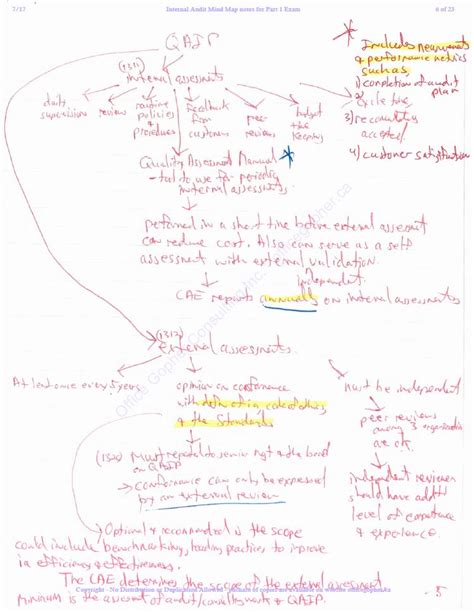 7/17 Internal Audit Mind Map notes for Part 1 Exam 6 of 23
QAIP
(1311)
internal assessments
* Includes
& performance metrics
such as;
1) completion of audit
plan
2) cycle time
3)
accepted
4) customer satisfaction
daily
supervisions
reviews
routine
policies
&
procedures
feedback
from
customers
peer
reviews
budget
time
keeping
Quality Assessment Manual *
- tool to use for periodic
internal assessments.
performed in a short time before external assessment
can reduce cost. Also can serve as a self
assessment with external validation.
independent
CAE reports annually on internal assessments
(1312)
external assessments.
At least once every 5 years
opinion on conformance
with def'n of ia code of ethics
& the Standards
must be independent
peer reviews
among 3 organizations
are ok
(1320) Must report to senior mgt and the board
on QAIP
→ conformance can only be expressed
by an external review
independent reviewer
should have
level of competence
& experience.
Optional & recommended is the scope
could include benchmarking, leading practices to improve
ia efficiency & effectiveness.
The CAE determines the scope of the external assessment
minimum is the assessment of audit/consulting & QAIP.
Office Gopher Consulting Inc. officegopher.ca
Copyright - No Distribution or Duplication Allowed - of copies are available on website officegopher.ca
3